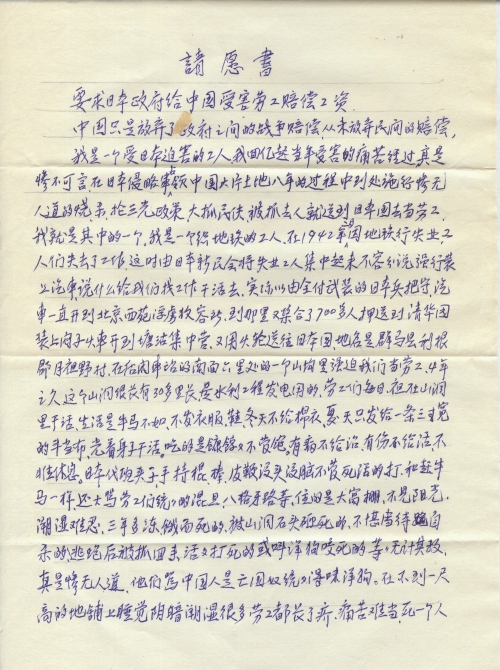 請愿書
要求日本政府给中国受害劳工赔偿工资
中国只是放弃了政府之间的战争赔偿,从未放弃民间的赔偿,
我是一个受日本迫害的工人我回亿起当年受害的痛苦经过真是
惨不可言在日本侵略占领中国大片土地八年的过程中到处施行惨无
人道的烧杀、抢三光政策大抓民伕,被抓去人就送到日本国去当劳工,
我就是其中的一个,我是一个绥地铁的工人,在1942年因地铁行失业,工
人们失去了工作,这时由日本新民会将失业工人集中起来不容分说强行装
上汽車,说什么给我们找工作干活去,实际以由全付武装的日本兵把守汽
車一直开到北京西苑浮虏收容所,到那里又集合了700多人押送到清华园
装上闷子火車开到塘沽集中营,又用火轮送往日本国地名是群马县利根
郡月夜野村,在后闲車站的南面六里处的一个山沟里强迫我们当劳工,4年
之久,这个山洞很长有30多里长是水利工程发电用的,劳工们每日夜在山洞
里干活,生活是牛马不如,不发衣服,鞋,冬天不给棉衣,夏天只发给一条三寸宽
的半当布,光着身子干活。吃的是糠
日本代班头子手持棍棒,皮鞭没头没脑不管死活的打,和赶牛
马一样,还大骂劳工们统统的混旦,八格牙路等,住的是大席棚,不见阳光,
潮湿难忍,三年多冻饿而死的,被山洞石头砸死的,不堪虐待自
杀的,逃跑后被抓回来活活打死的或叫洋狗咬死的等,无计其数,
真是惨无人道,他们骂中国人是亡国奴统统得味洋狗。在不到一尺
高的地铺上睡觉阴暗潮湿很多劳工都长了疥,痛苦难当,死一个人